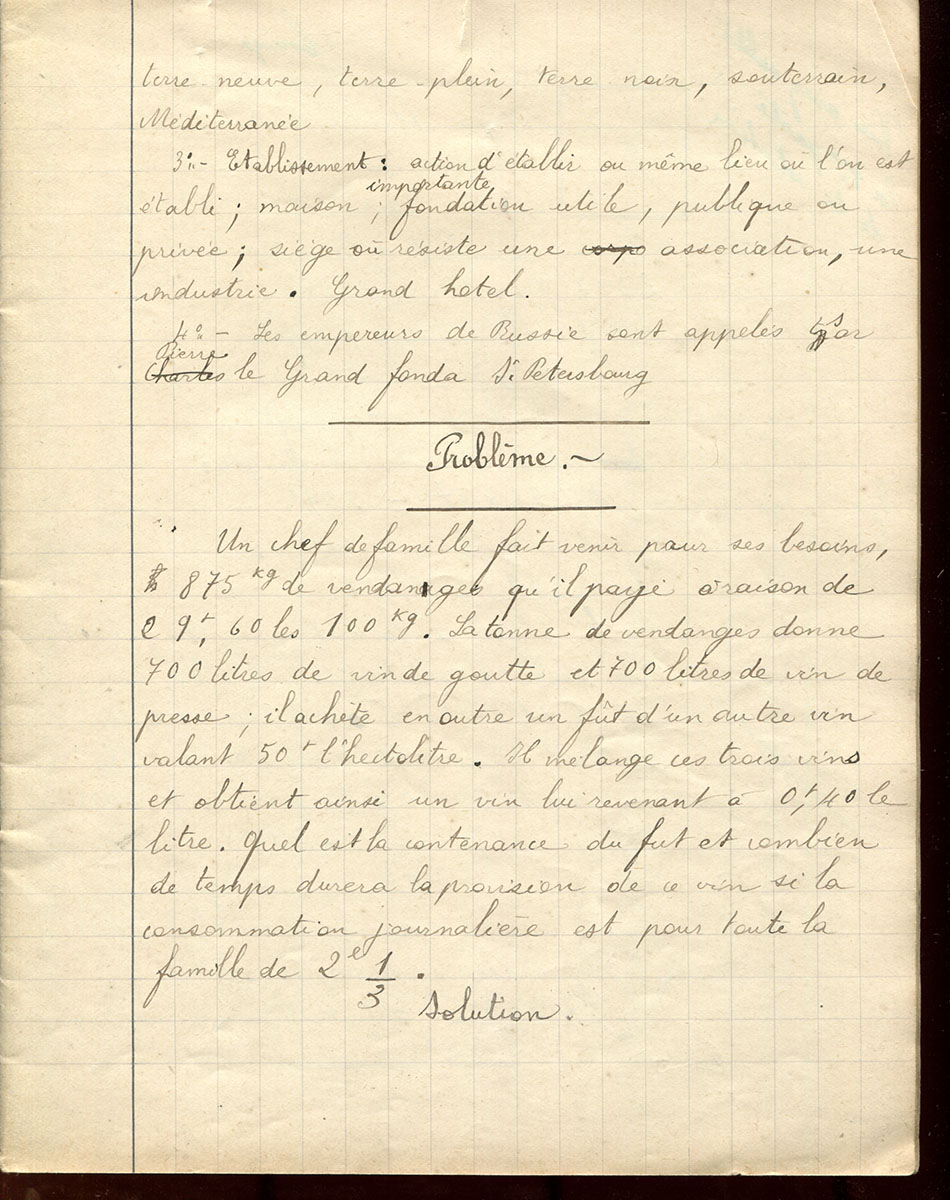 terre-neuve, terre-plein, terre noix, souterrain,
Méditerranée
3º.- Etablissement : action d'établir ou même lieu où l'on est
importante
établi ; maison ; fondation utile, publique ou
privée ; siège où résiste une corps association, une
industrie. Grand hotel.
4º.- Les empereurs de Russie sont appelés
Pierre
Charles le Grand fonda St Petersbourg
Problème.~
Un chef de famille fait venir pour ses besoins,
875 kg de vendanges qu'il paye à raison de
29f, 60 les 100 Kg. La tonne de vendanges donne
700 litres de vin de goutte et 700 litres de vin de
presse ; il achète en outre un fût d'un autre vin
valant 50f l'hectolitre. Il mélange ces trois vins
et obtient ainsi un vin lui revenant à 0f,40 le
litre. Quel est la contenance du fut et combien
de temps durera la provision de ce vin si la
consommation journalière est pour toute la
famille de 2l 1/3.
Solution.